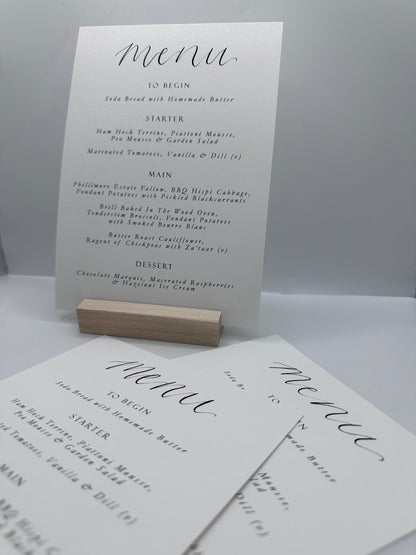 menu
TO BEGIN
Soda Bread with Homemade Butter
STARTER
Ham Hock Terrine, Piattoni Mousse,
Pea Mousse & Garden Salad
Marinated Tomatoes, Vanilla & Dill (v)
MAIN
Phillimore Estate Fallow, BBQ Hispi Cabbage,
Fondant Potatoes with Pickled Blackcurrants
Brill Baked In The Wood Oven,
Tenderstem Broccoli, Fondant Potatoes
with Smoked Beurre Blanc
Butter Roast Cauliflower,
Ragout of Chickpeas with Za'taar (v)
DESSERT
Chocolate Marquis, Macerated Raspberries
& Hazelnut Ice Cream
menu
TO BEGIN
Soda Bread with Homemade Butter
STARTER
Ham Hock Terrine, Piattoni Mousse,
Pea Mousse & Garden Salad
Tomatoes, Vanilla & Dill (v)
MAIN
BBQ Hispi C
menu
Soda
TO
Homemade Butter
Mousse,
Salad
& Dill (v)